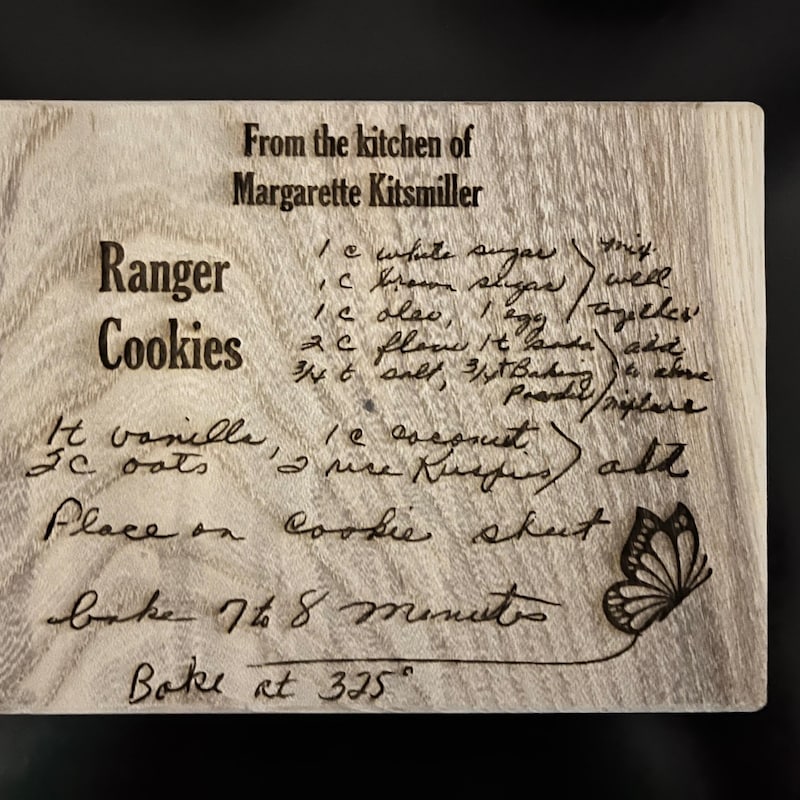 From the kitchen of
Margarette Kitsmiller
Ranger
Cookies
1 c white sugar
1 c brown sugar
1 c oleo, 1 egg
mix
well
together
2 c flour 1t soda
3/4 t salt, 3/4t Baking
Powder
add
to above
mixture
1t vanilla, 1 c coconut
2c oats 2 rice Krispies
add
Place on cookie sheet
bake 7 to 8 minutes
Bake at 325°